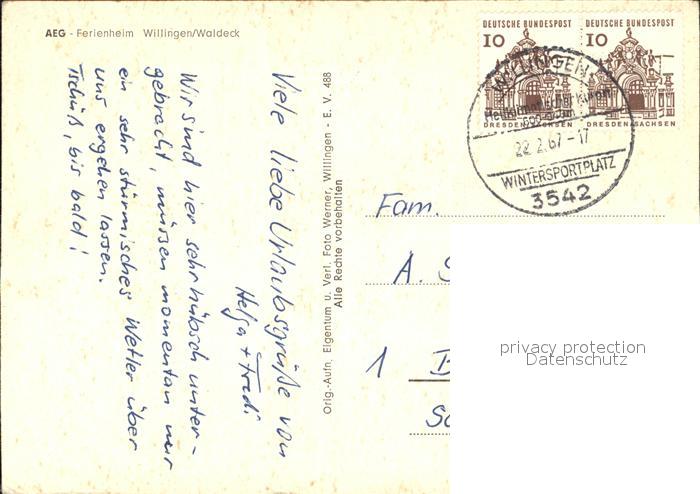 AEG - Ferienheim Willingen/Waldeck
Wir sind hier sehr hübsch unter-
gebracht, müssen momentan nur
ein sehr stürmisches Wetter über
uns ergehen lassen.
Tschüß, bis bald!
Viele liebe Urlaubsgrüße von
Helga + Fredi
Orig.-Aufn. Eigentum u. Verl. Foto Werner, Willingen - E. V. 488
Alle Rechte vorbehalten
DEUTSCHE BUNDESPOST
10
DRESDEN/SACHSEN
DEUTSCHE BUNDESPOST
10
DRESDEN/SACHSEN
WILLINGEN
Heilklimatischer Kurort
22.2.67-17
WINTERSPORTPLATZ
3542
Fam.
A. S
1 B
privacy protection
Datenschutz